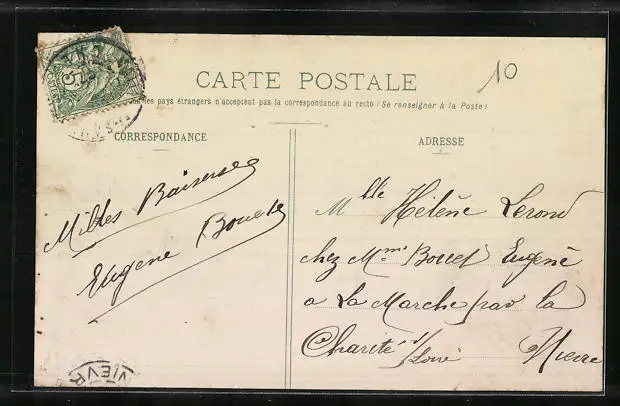 10
CARTE POSTALE
les pays étrangers n'acceptent pas la correspondance au recto (Se renseigner à la Poste)
CORRESPONDANCE
ADRESSE
Milles Baisers
Eugène Bouet
Mlle Hélène Lerond
chez Mme Bouet Eugène
a La Marche par la
Charité s/ Loire Nièvre
NIEVR